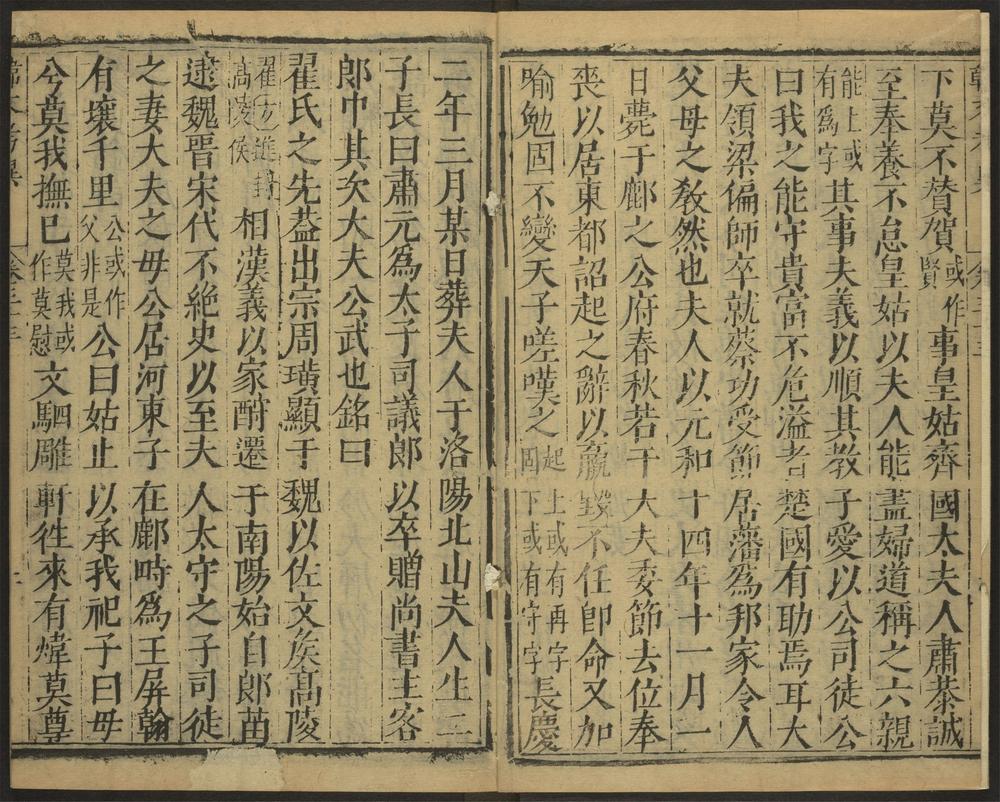 下莫不賛賀或作賢事皇姑齊國太夫人肅恭誠
至奉養不怠皇姑以夫人能盡婦道稱之六親
能上或有爲字其事夫義以順其教子愛以公司徒公
曰我之能守貴富不危溢者楚國有助焉耳大
夫領梁偏師卒就蔡功受節居藩爲邦家令人
父母之敎然也夫人以元和十四年十一月一
日薨于鄜之公府春秋若干大夫委節去位奉
喪以居東都詔起之辭以羸毀不任卽命又加
喻勉固不變天子嗟嘆之起上或有再字固下或有字字長慶
二年三月某日葬夫人于洛陽北山夫人生二
子長曰肅元爲太子司議郎以卒贈尚書主客
郎中其次大夫公武也銘曰
翟氏之先葢出宗周璜顯于魏以佐文矦高陵
翟方進封高陵侯相漢義以家酧遷于南陽始自郎苗
逮魏晉宋代不絕史以至夫人太守之子司徒
之妻大夫之母公居河東子在鄜時爲王屏翰
有壤千里公或作父非是公曰姑止以承我祀子曰母
兮莫我撫已莫我或作莫慰文駟雕軒徃來有煒莫尊